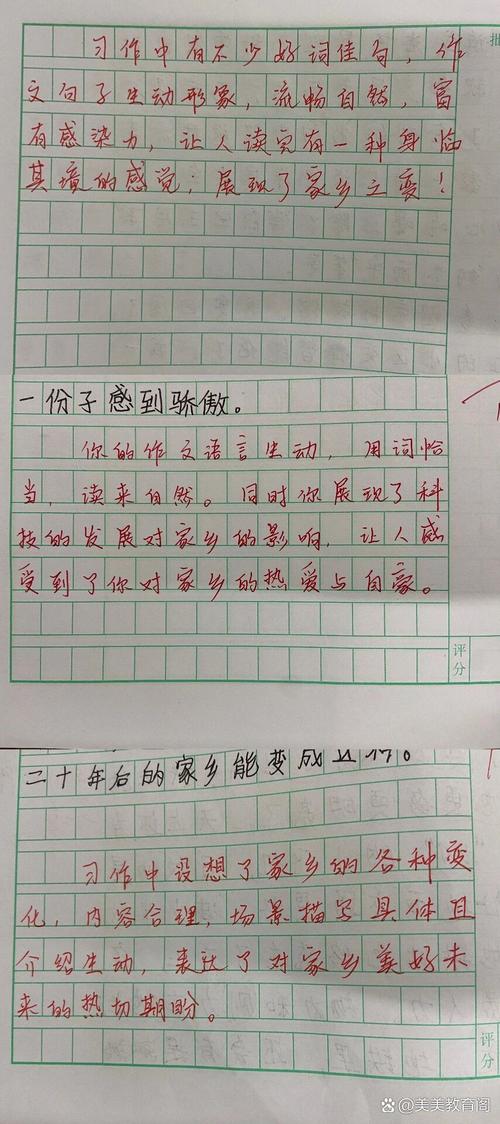 习作中有不少好词佳句，作
文句子生动形象，流畅自然，富
有感染力，让人读完有一种身临
其境的感觉；展现了家乡之变！
一份子感到骄傲。
你的作文语言生动，用词恰
当，读来自然。同时你展现了科
技的发展对家乡的影响，让人感
受到了你对家乡的热爱与自豪。
评分
二十年后的家乡能变成这样。
习作中设想了家乡的各种变
化，内容合理，场景描写具体且
介绍生动，表达了对家乡美好未
来的热切期盼。
评分
美美教育阁